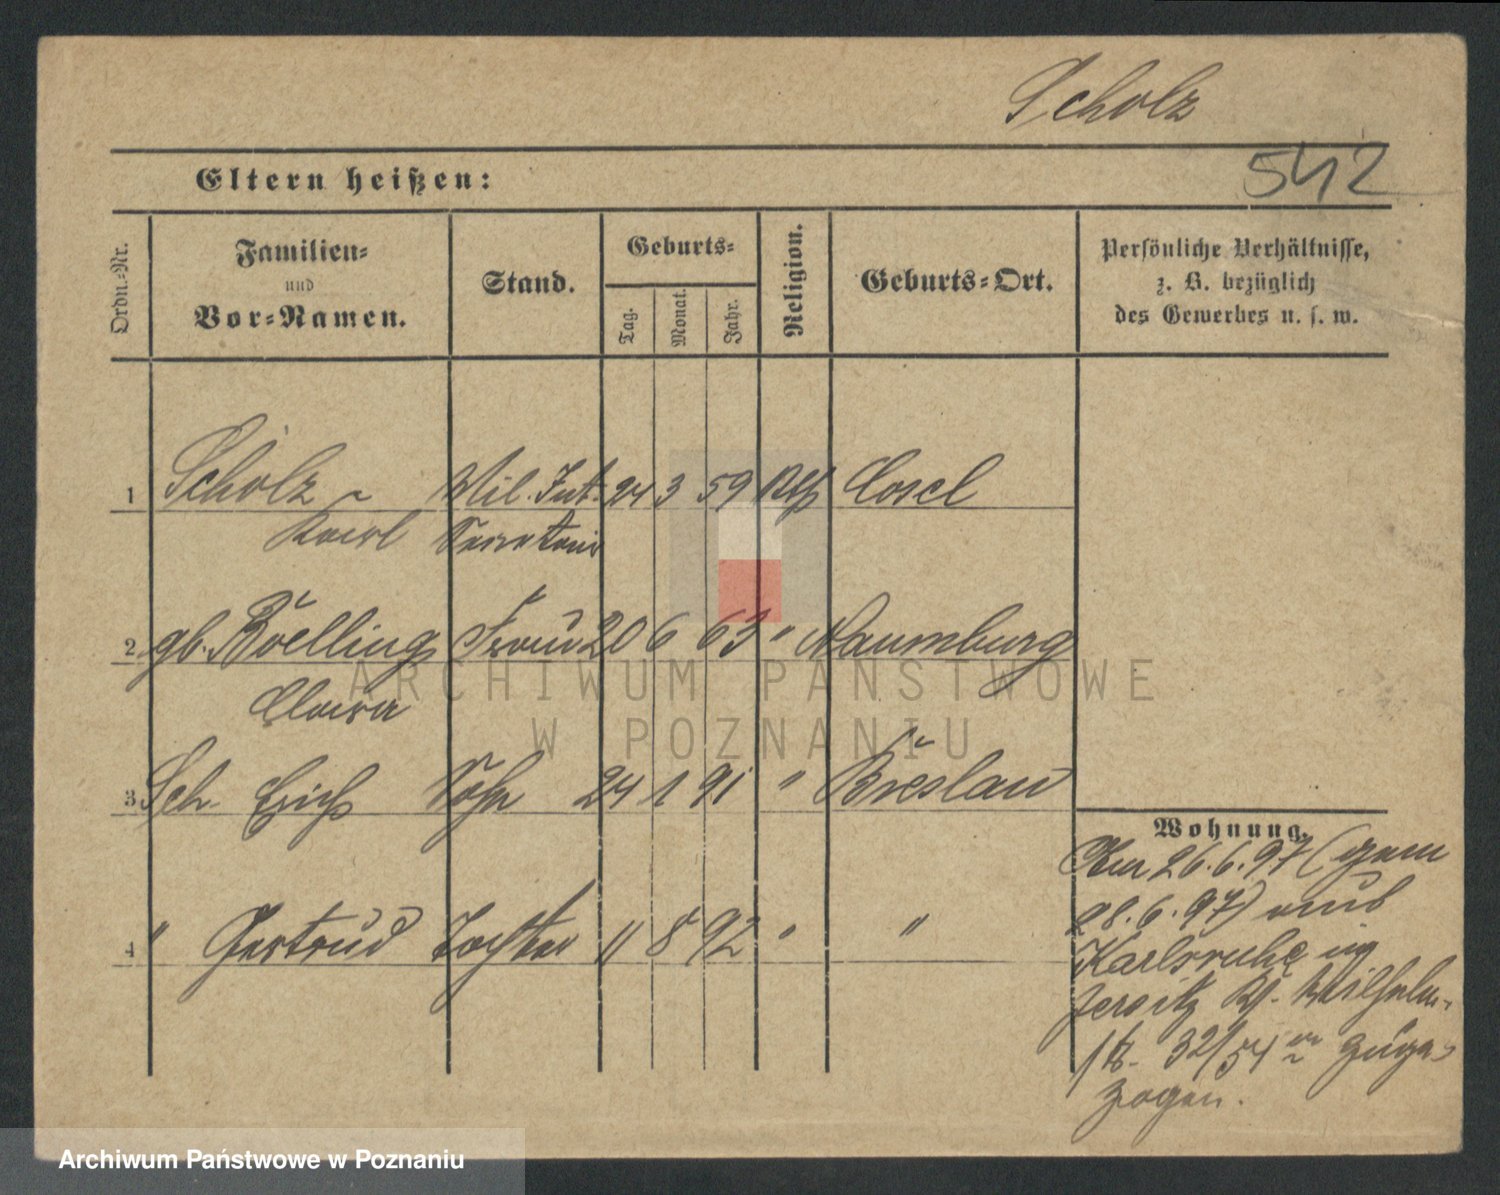 Scholz
542
Eltern heißen:
Ordn.-Nr.
Familien-
und
Vor-Namen.
Stand.
Geburts-
Tag.
Monat.
Jahr.
Religion.
Geburts-Ort.
Persönliche Verhältnisse,
z. B. bezüglich
des Gewerbes u. s. w.
1 Scholz Mil. Int. 24 3 59 Cosel
Karl Secretair
2 gb. Röelling Frau 20 6 63 " Naumburg
Clara
3 Sch. Erich Sohn 24 1 91 " Breslau
4 " Gertrud Tochter 11 8 92 " "
Wohnung.
Am 26.6.97 (gem
28.6.97) aus
Karlsruhe in
Jersitz Wilhelm-
str. 32/54 zuge-
zogen.
ARCHIWUM PAŃSTWOWE
W POZNANIU
Archiwum Państwowe w Poznaniu